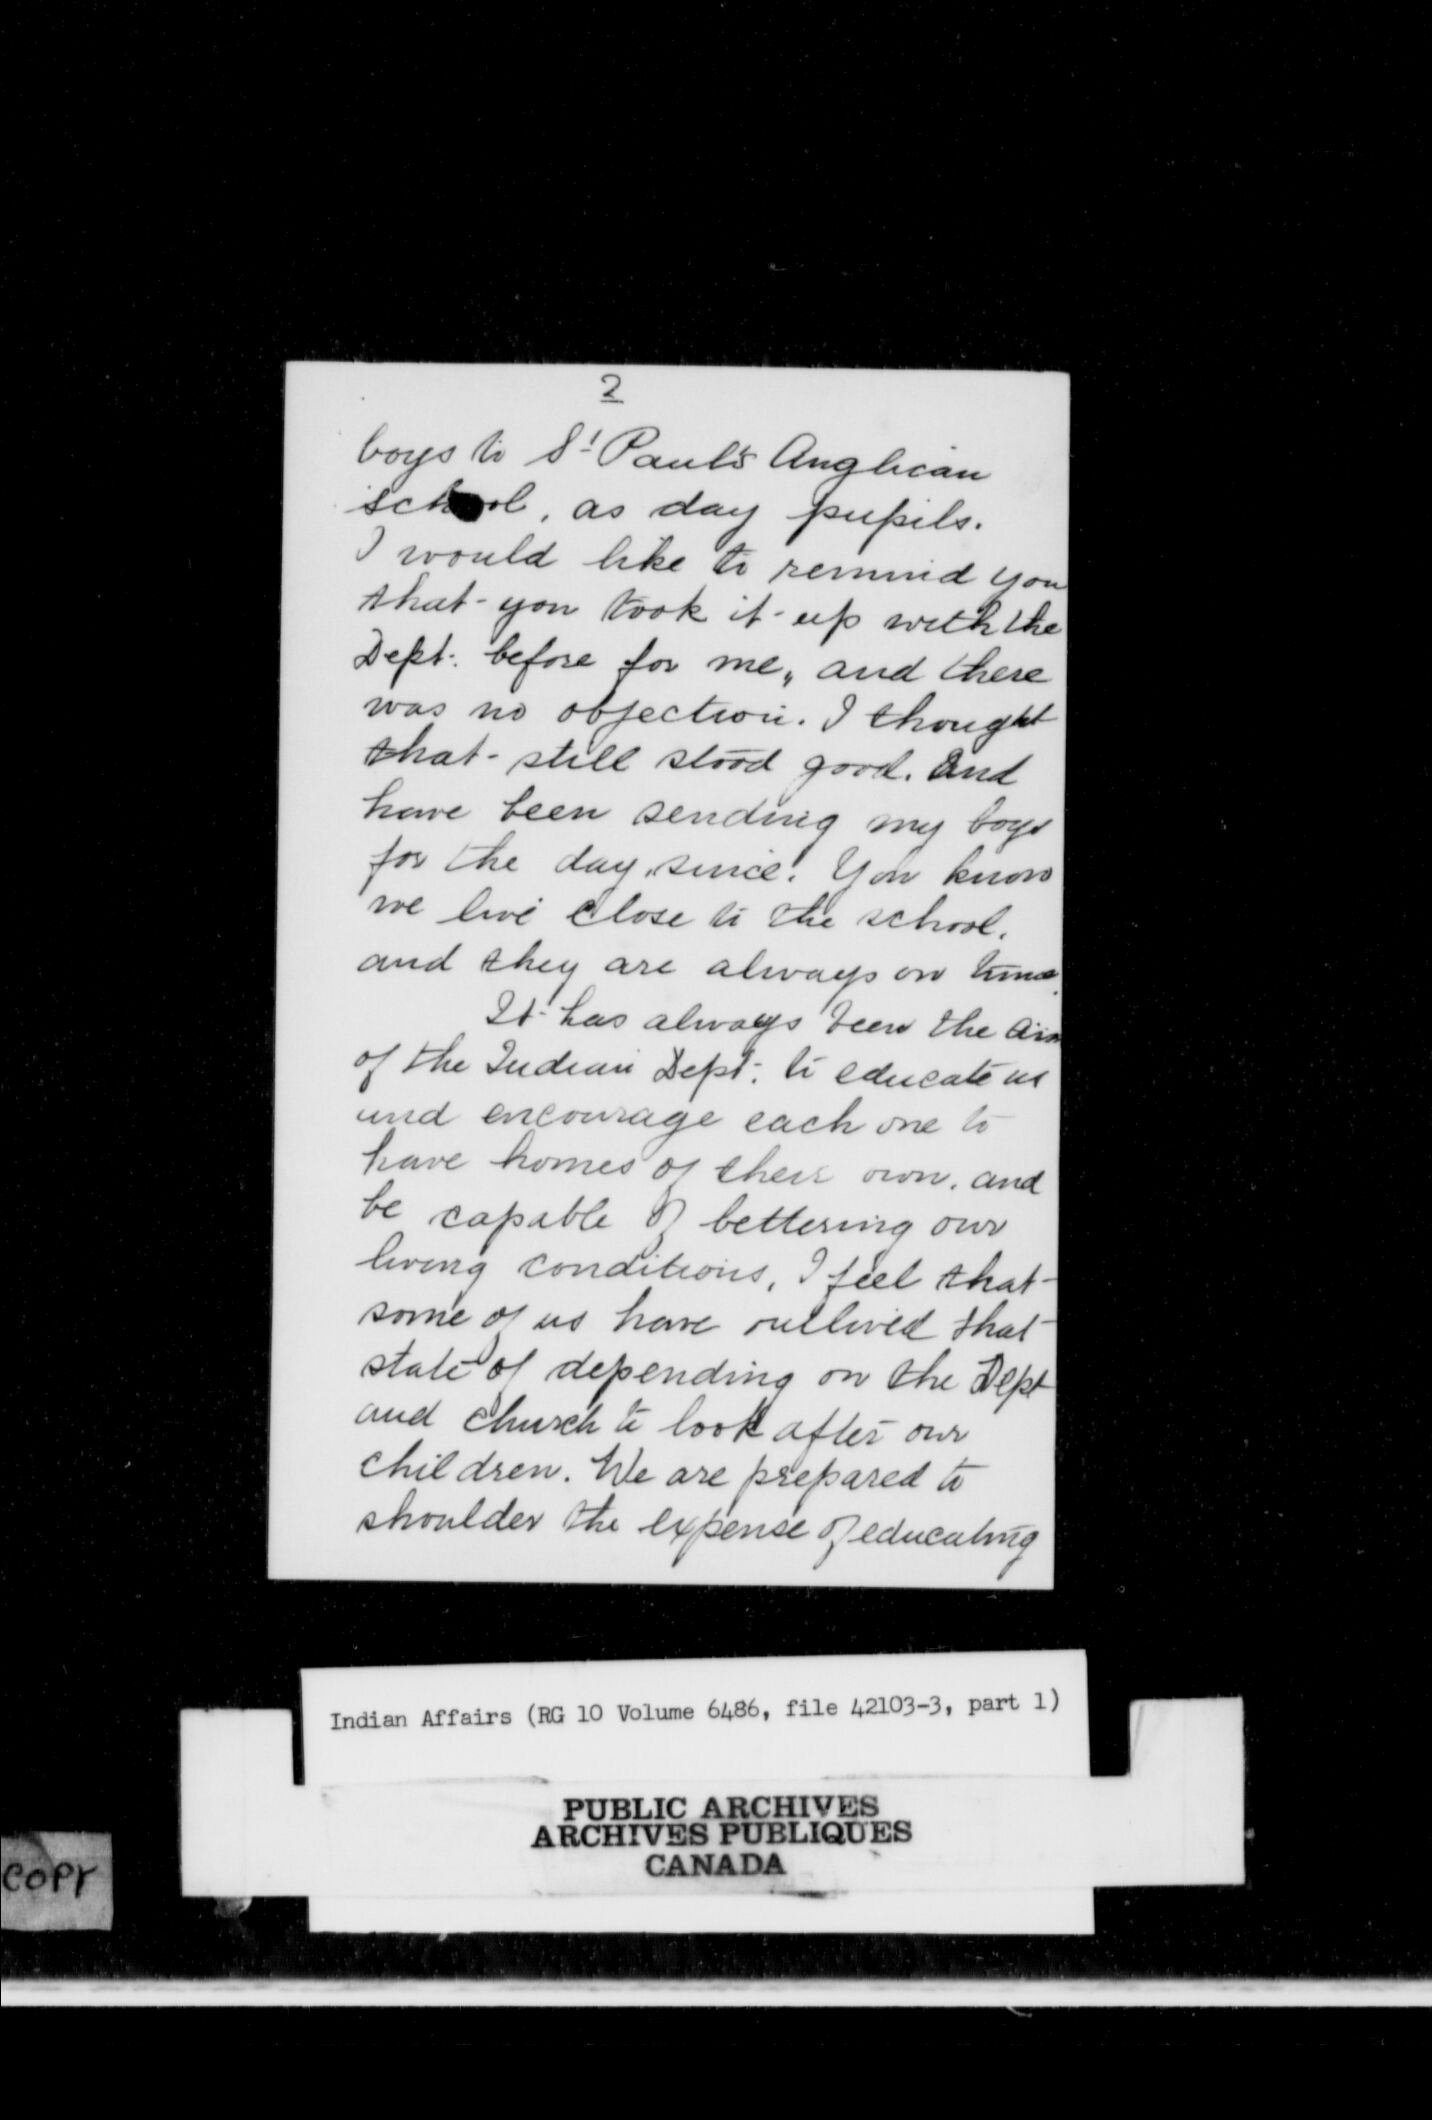 2
boys to St Paul's Anglican
school, as day pupils.
I would like to remind you
that you took it up with the
Dept. before for me, and there
was no objection. I thought
that still stood good. and
have been sending my boys
for the day, since. You know
we live close to the school,
and they are always on time.
It has always been the aim
of the Indian Dept. to educate us
and encourage each one to
have homes of their own. and
be capable of bettering our
living conditions, I feel that
some of us have outlived that
state of depending on the Dept
and church to look after our
children. We are prepared to
shoulder the expense of educating
Indian Affairs (RG 10 Volume 6486, file 42103-3, part 1)
PUBLIC ARCHIVES
ARCHIVES PUBLIQUES
CANADA
COPY